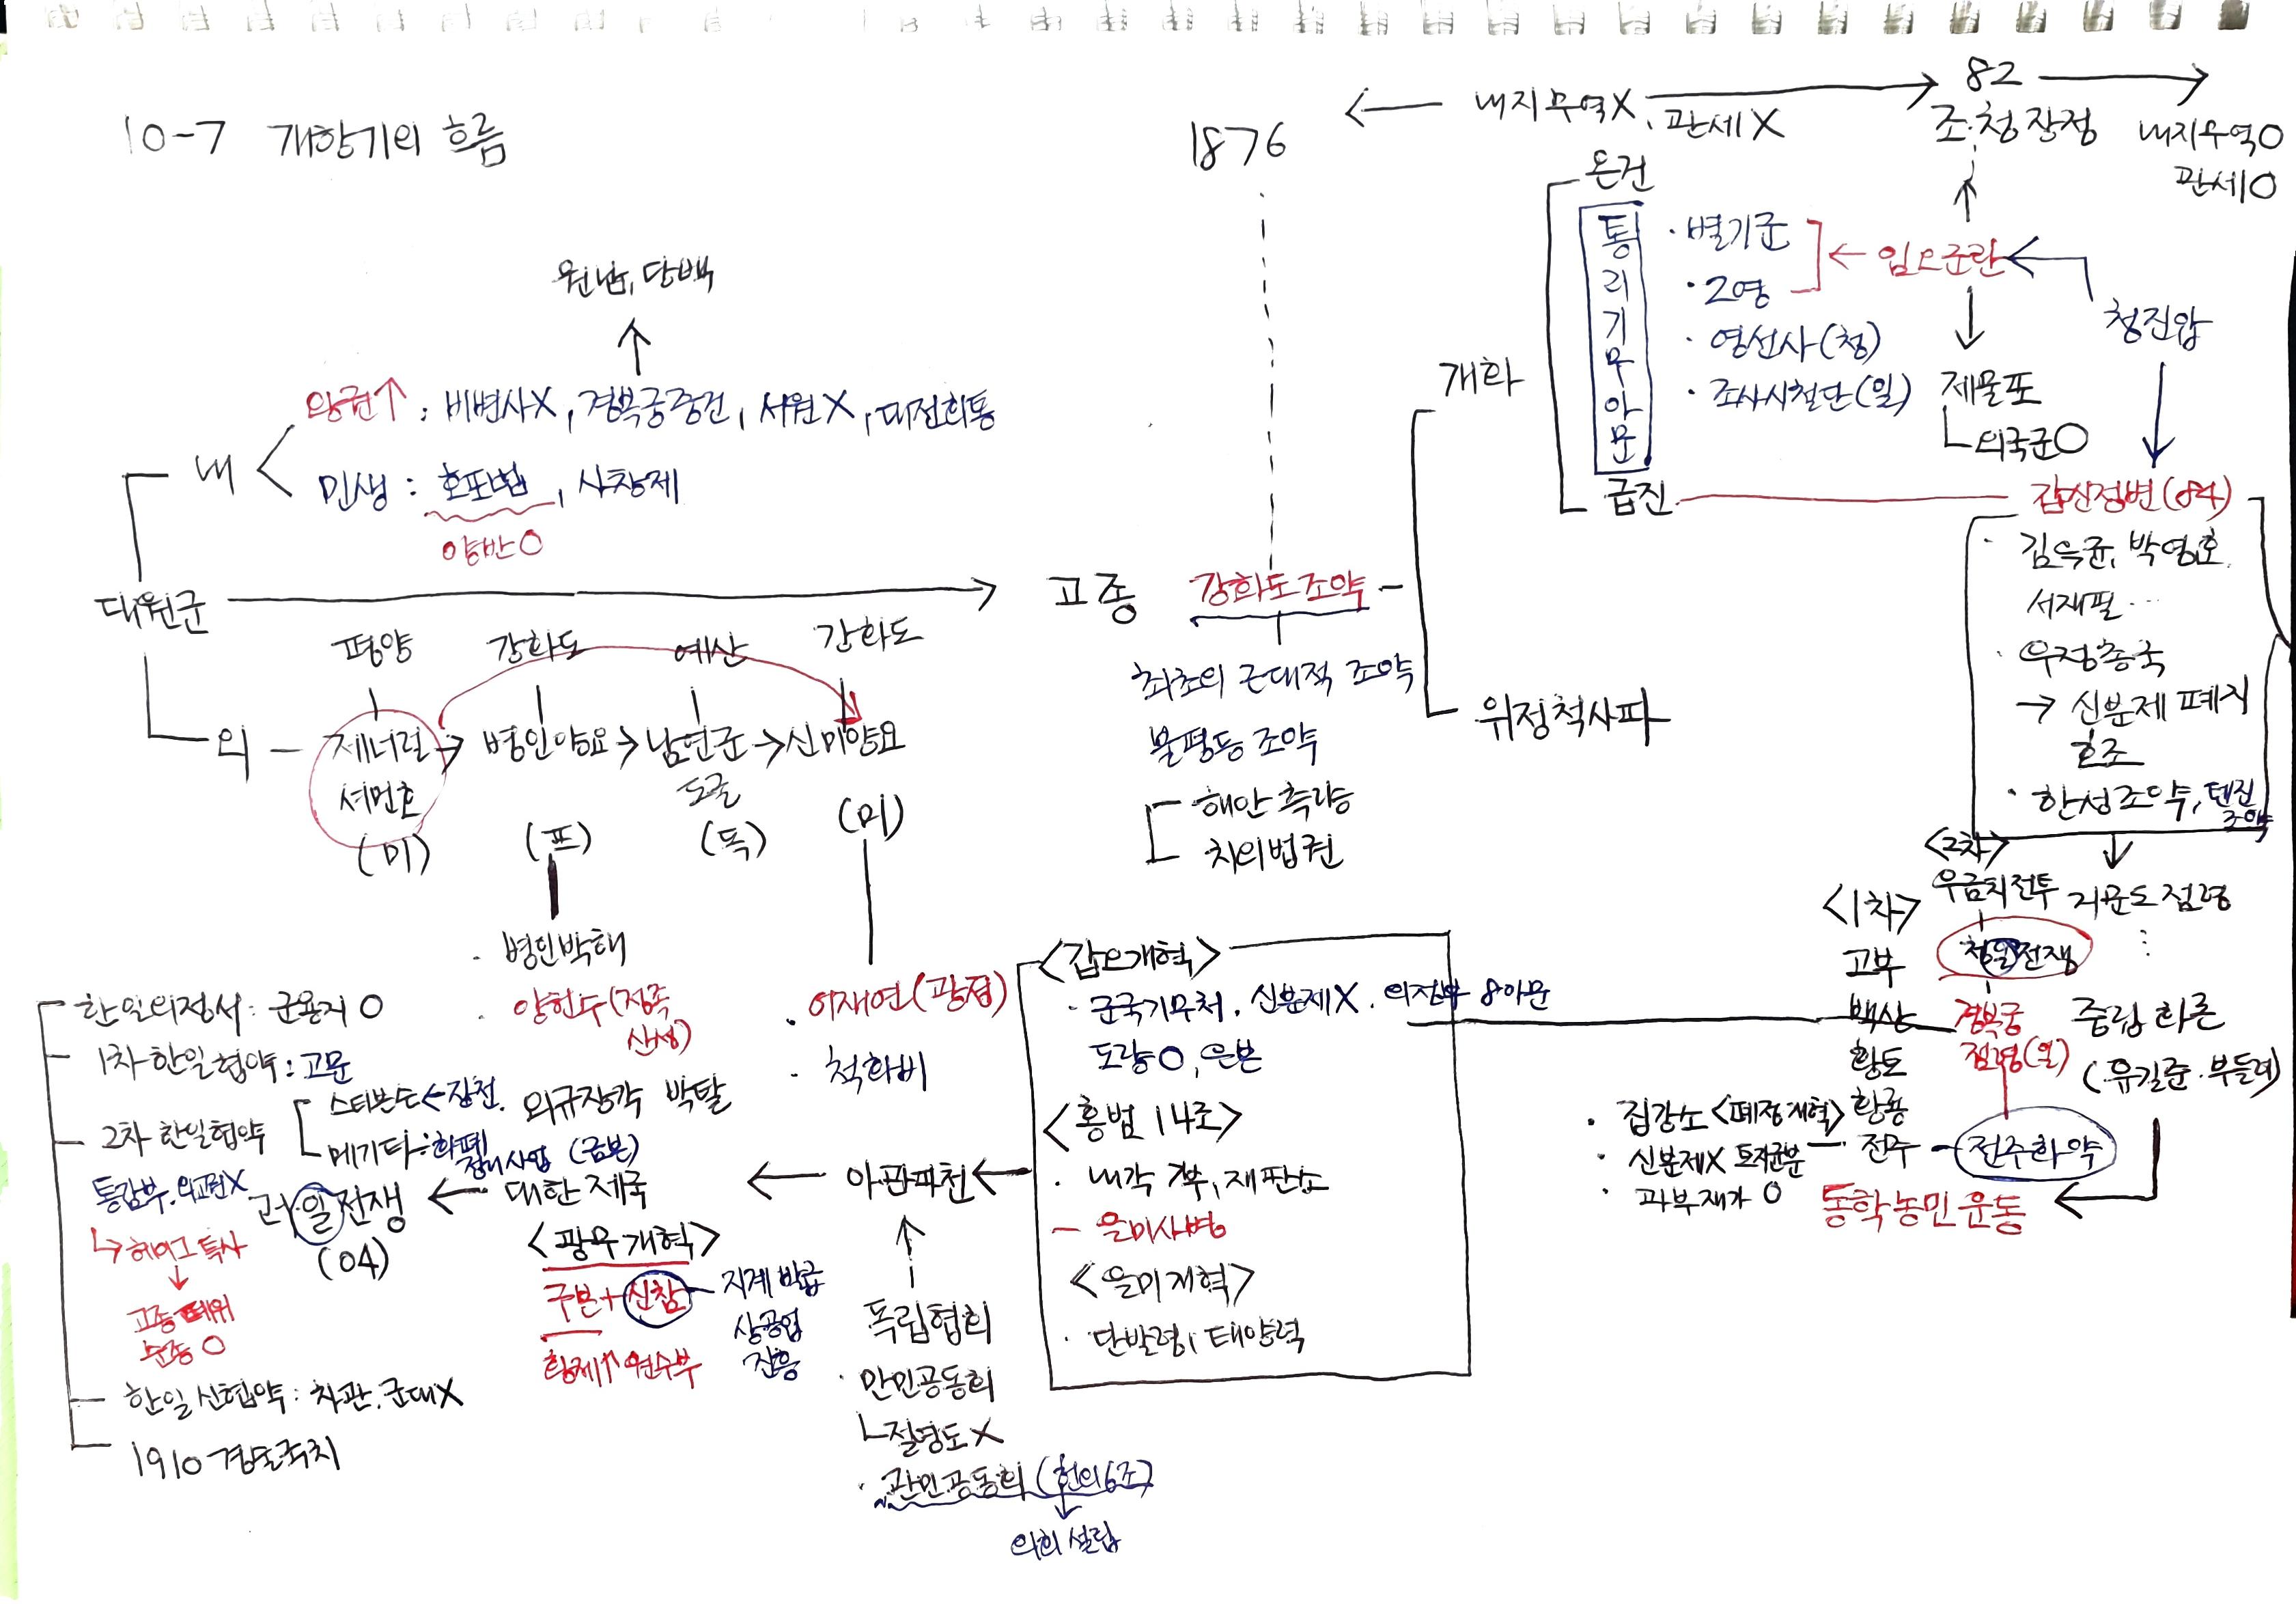 10-7 개항기의 흐름
1876
내지무역X, 관세X
82
조·청장정
내지무역O
관세O
온건
통리기무아문
· 별기군
· 2영
· 영선사(청)
· 조사시철단(일)
임오군란
청진압
제물포
외국군O
개화
급진
갑신정변(84)
· 김옥균, 박영효
서재필…
· 우정총국
→ 신분제 폐지
호조
· 한성조약, 텐진
조약
위정척사파
원납, 당백
왕권↑ : 비변사X, 경복궁중건, 서원X, 대전회통
내
민생 : 호포법, 사창제
양반O
대원군
고종
강화도 조약
최초의 근대적 조약
불평등 조약
해안 측량
치외법권
평양
강화도
예산
강화도
외 - 제너럴 → 병인양요 → 남연군 → 신미양요
셔먼호
도굴
(미)
(프)
(독)
(미)
· 병인박해
· 양헌수(정족
산성)
외규장각 박탈
· 어재연(광점)
· 척화비
거문도 점령
중립화론
(유길준·부들러)
동학농민운동
<1차>
고부
백산
황토
황룡
전주
<2차>
우금치전투
청일전쟁
경복궁
점령(일)
전주화약
· 집강소 <폐정개혁>
· 신분제X 토지균분
· 과부재가 O
<갑오개혁>
· 군국기무처. 신분제X. 의정부 8아문
도량O, 은본
<홍범 14조>
· 내각 7부, 재판소
- 을미사변
<을미개혁>
· 단발령, 태양력
아관파천
독립협회
· 만민공동회
절영도X
· 관민공동회 (헌의6조)
의회 설립
대한제국
<광무개혁>
구본+신참
지계 발급
상공업
진흥
황제↑ 원수부
러·일전쟁
(04)
한일의정서 : 군용지 O
1차 한일협약 : 고문
스티븐슨←장천.
메가타÷화폐
정리사업 (금본)
2차 한일협약
통감부. 외교권X
↳ 헤이그 특사
고종 폐위
순종 O
한일 신협약 : 차관. 군대X
1910 경술국치